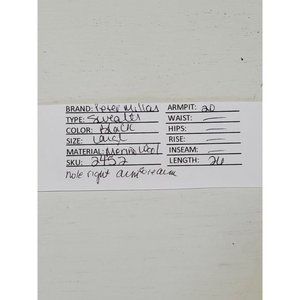 BRAND: Peter Millar ARMPIT: 20
TYPE: Sweater WAIST: —
COLOR: Black HIPS: —
SIZE: Large RISE: —
MATERIAL: Merino Wool INSEAM: —
SKU: 2452 LENGTH: 26
hole right arm